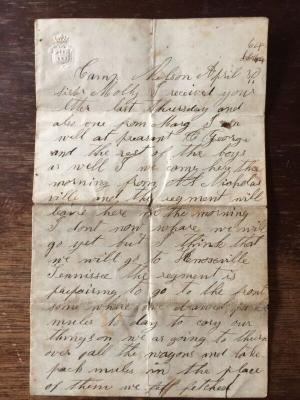 Camp Nelson April 30
64
sister Molly I received your
letter last thursday and
also one from Marg I am
well at preasant C George
and the rest of the boys
is well I we came here this
morning from Nicholas
ville and the regiment will
leave here in the morning
I dont now whare we will
go yet but I think that
we will go to Knoxville
Tennissee the regment is
prepairing to go to the front
some whare we drawed pack
mules to day to cary our
things on we are going to thern
over all the wagons and take
pack mules in the place
of them we fetched